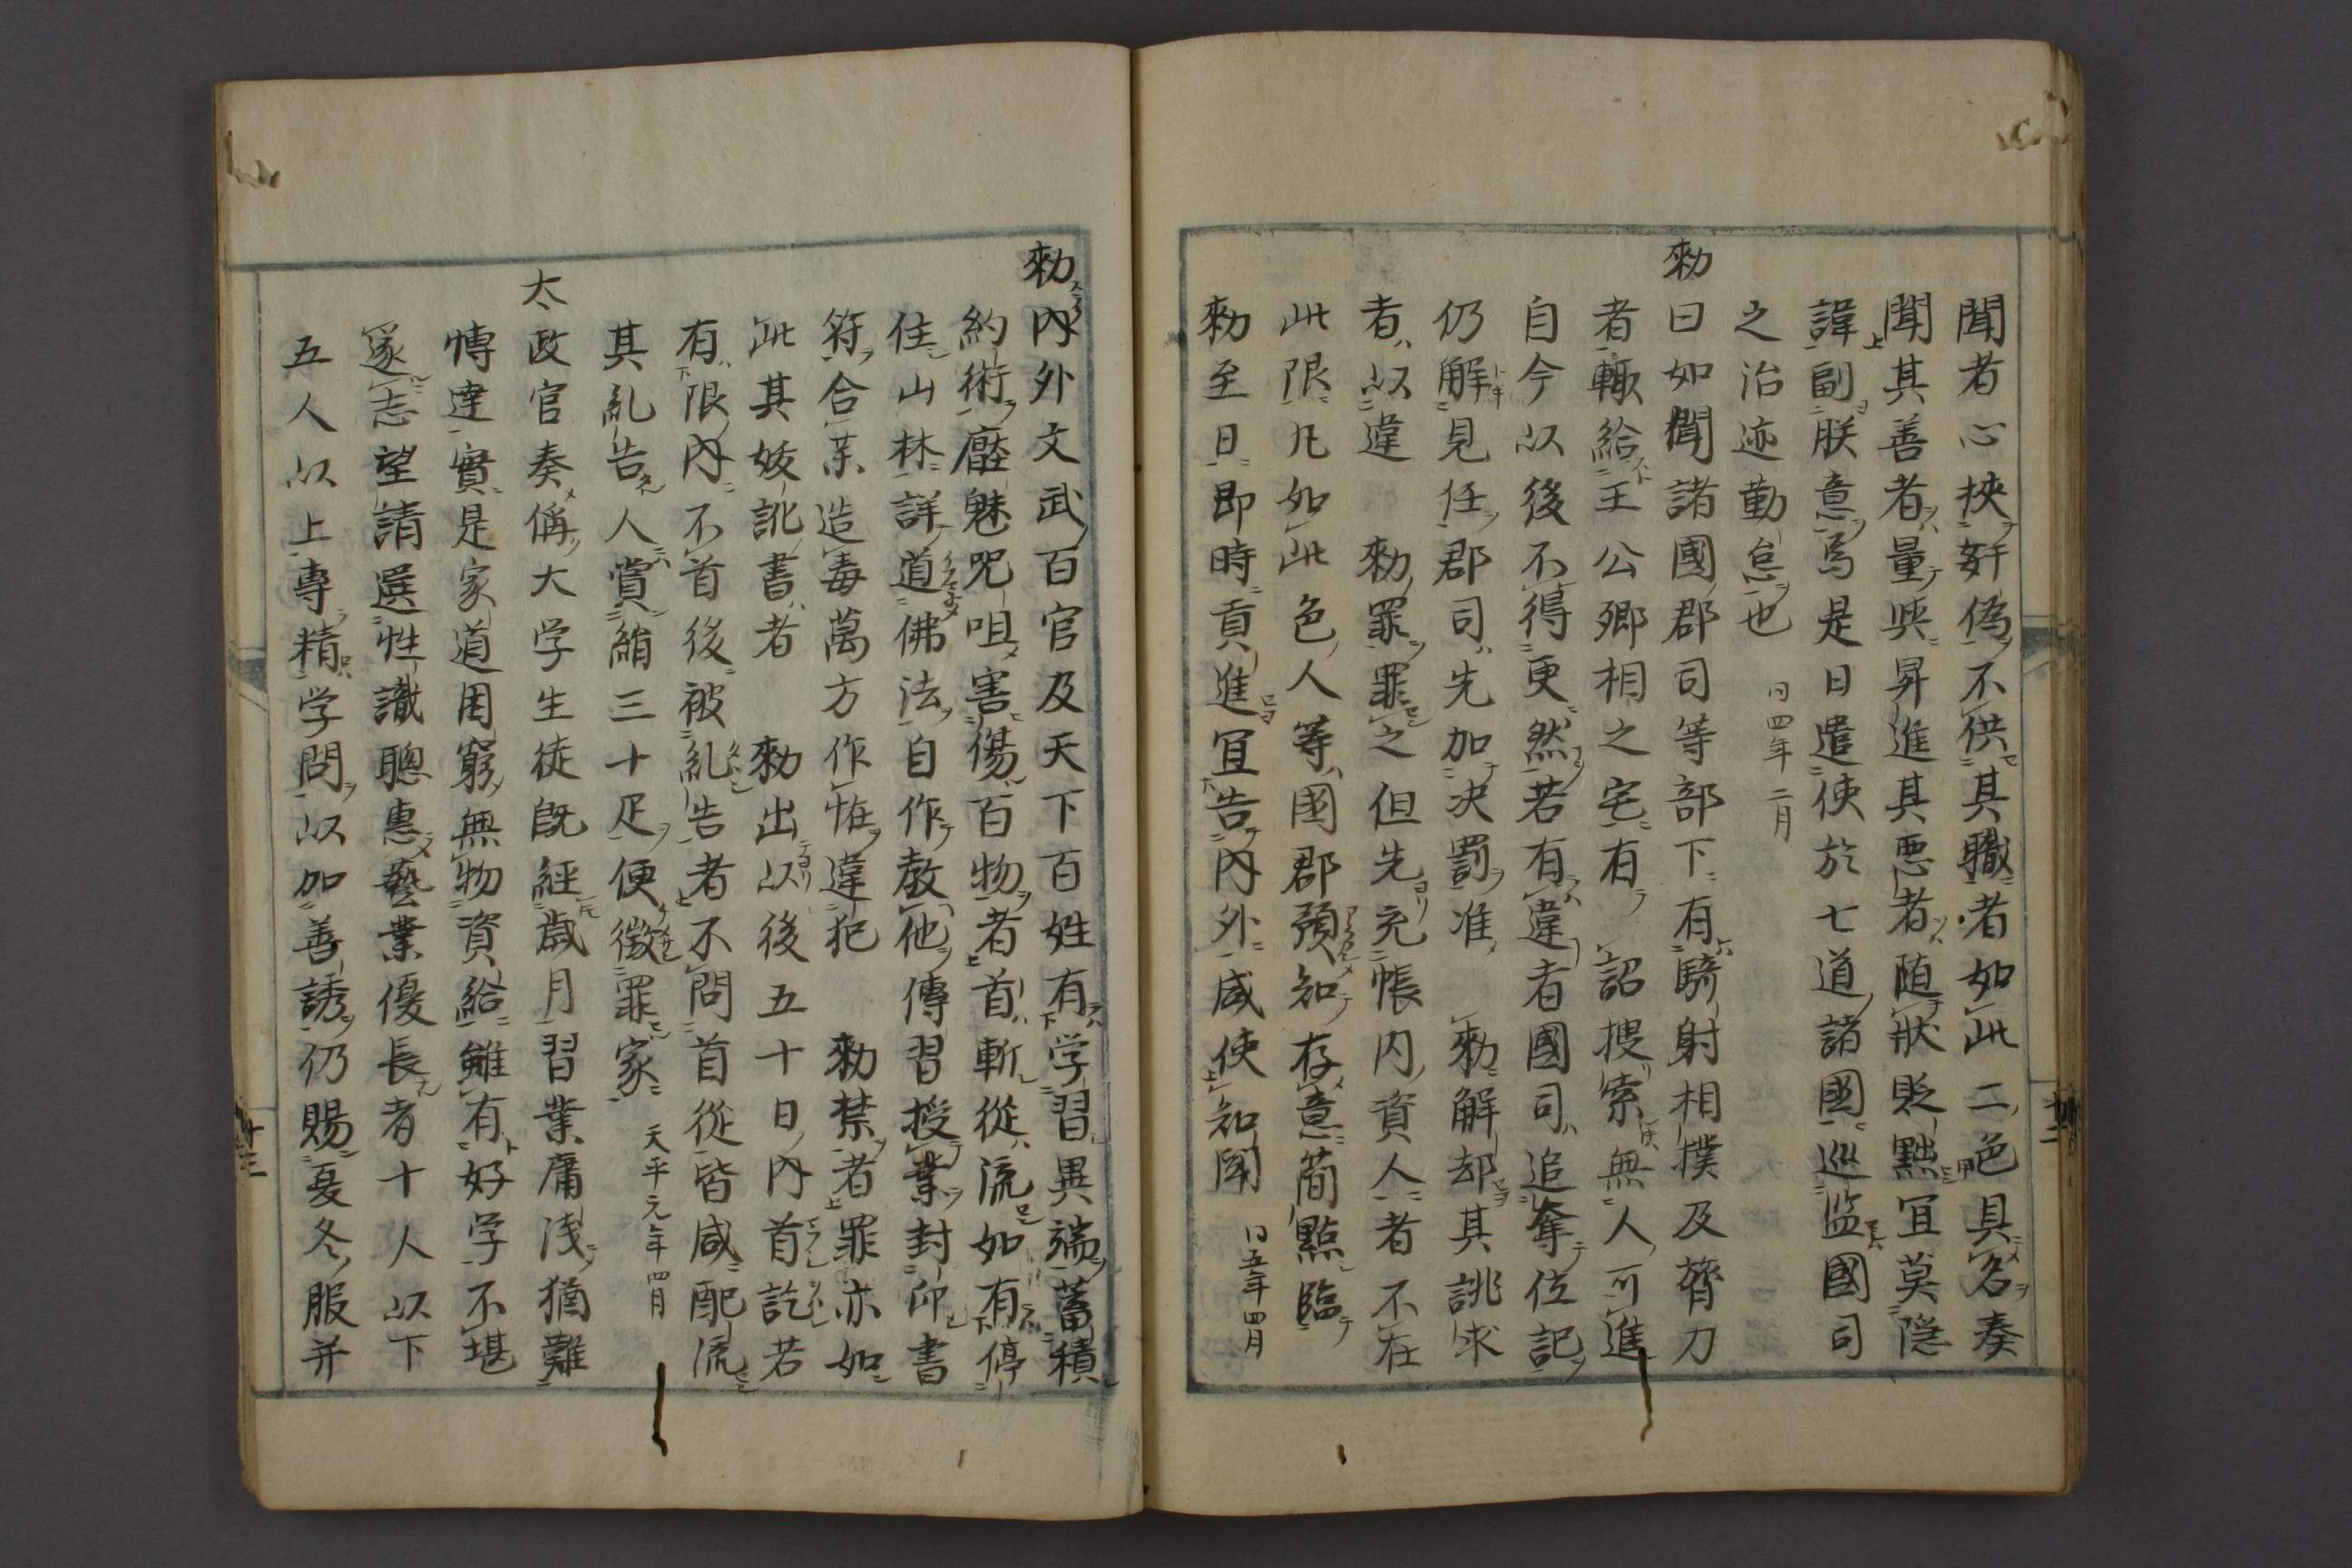 聞者心挾奸偽不供其職者如此二色具名奏
聞其善者量與昇進其悪者随狀貶黜宜莫隠
諱副朕意焉是日遣使於七道諸國巡监國司
之治迹勤怠也 同四年二月
勅曰如聞諸國郡司等部下有騎射相撲及膂力
者輙給王公卿相之宅有 詔搜索無人可進
自今以後不得更然若有違者國司追奪位記
仍解見任郡司先加决罰准 勅解却其誂求
者以違 勅罪罪之但先充帳内資人者不在
此限凡如此色人等國郡預知存意簡點臨
勅至日即時貢進宜告内外咸使知聞 同五年四月
十二
勅内外文武百官及天下百姓有学習異端蓄積
約術魘魅咒咀害傷百物者首斬從流如有停
住山林詳道佛法自作教他傳習授業封印書
符合藥造毒萬方作恠違犯 勅禁者罪亦如
此其妖訛書者 勅出以後五十日内首訖若
有限内不首後被糺告者不問首從皆咸配流
其糺告人賞絹三十疋便徴罪家 天平元年四月
太政官奏偁大学生徒既経歳月習業庸浅猶難
博達實是家道困窮無物資給雖有好学不堪
遂志望請選性識聰惠藝業優長者十人以下
五人以上專精学問以加善誘仍賜夏冬服并
十三